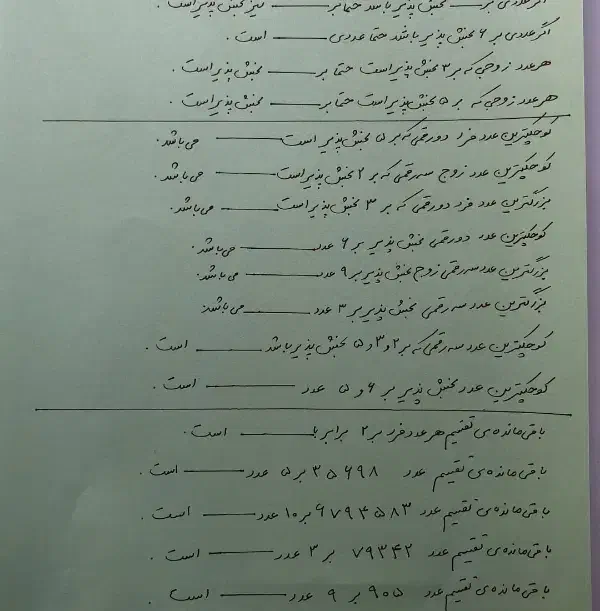 اگر عددی بر ــــــــ بخش پذیر باشد حتماً بر ــــــــ نیز بخش پذیر است .
اگر عددی بر ۶ بخش پذیر باشد حتماً عددی ــــــــ است .
هر عدد زوجی که بر ۳ بخش پذیر است حتماً بر ــــــــ بخش پذیر است .
هر عدد زوجی که بر ۵ بخش پذیر است حتماً بر ــــــــ بخش پذیر است .
کوچکترین عدد فرد دورقمی که بر ۵ بخش پذیر است ــــــــ می باشد .
کوچکترین عدد زوج سه رقمی که بر ۲ بخش پذیر است ــــــــ می باشد .
بزرگترین عدد فرد دورقمی که بر ۳ بخش پذیر است ــــــــ می باشد .
کوچکترین عدد دورقمی بخش پذیر بر ۶ عدد ــــــــ می باشد .
بزرگترین عدد سه رقمی زوج بخش پذیر بر ۹ عدد ــــــــ می باشد .
بزرگترین عدد سه رقمی بخش پذیر بر ۳ عدد ــــــــ می باشد .
کوچکترین عدد سه رقمی که بر ۲ و ۳ و ۵ بخش پذیر باشد ــــــــ است .
کوچکترین عدد بخش پذیر بر ۶ و ۵ عدد ــــــــ است .
باقی مانده ی تقسیم هر عدد فرد بر ۲ برابر با ــــــــ است .
باقی مانده ی تقسیم عدد ۳۵۶۹۸ بر ۵ عدد ــــــــ است .
باقی مانده ی تقسیم عدد ۶۷۹۴۵۸۳ بر ۱۰ عدد ــــــــ است .
باقی مانده ی تقسیم عدد ۷۹۳۴۲ بر ۳ عدد ــــــــ است .
باقی مانده ی تقسیم عدد ۹۰۵ بر ۹ عدد ــــــــ است .